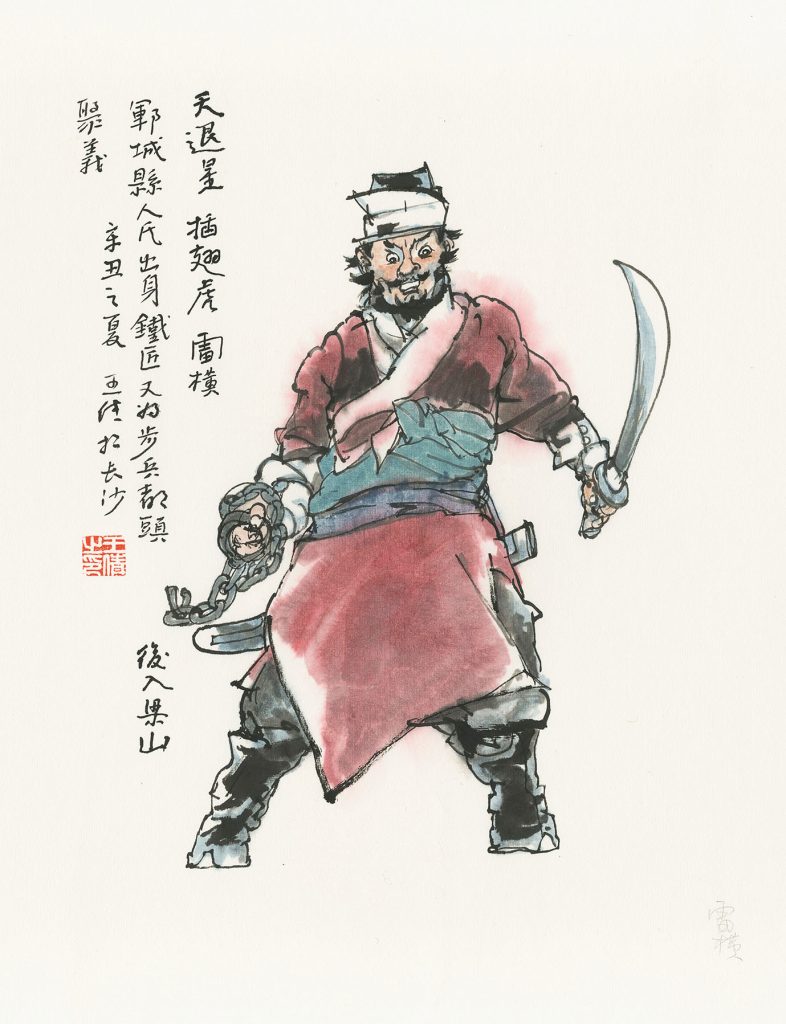 天退星 插翅虎 雷横
鄆城縣人氏出身鐵匠又为步兵都頭
後入梁山
聚義
辛丑之夏 王倩於长沙
王倩之印
雷横